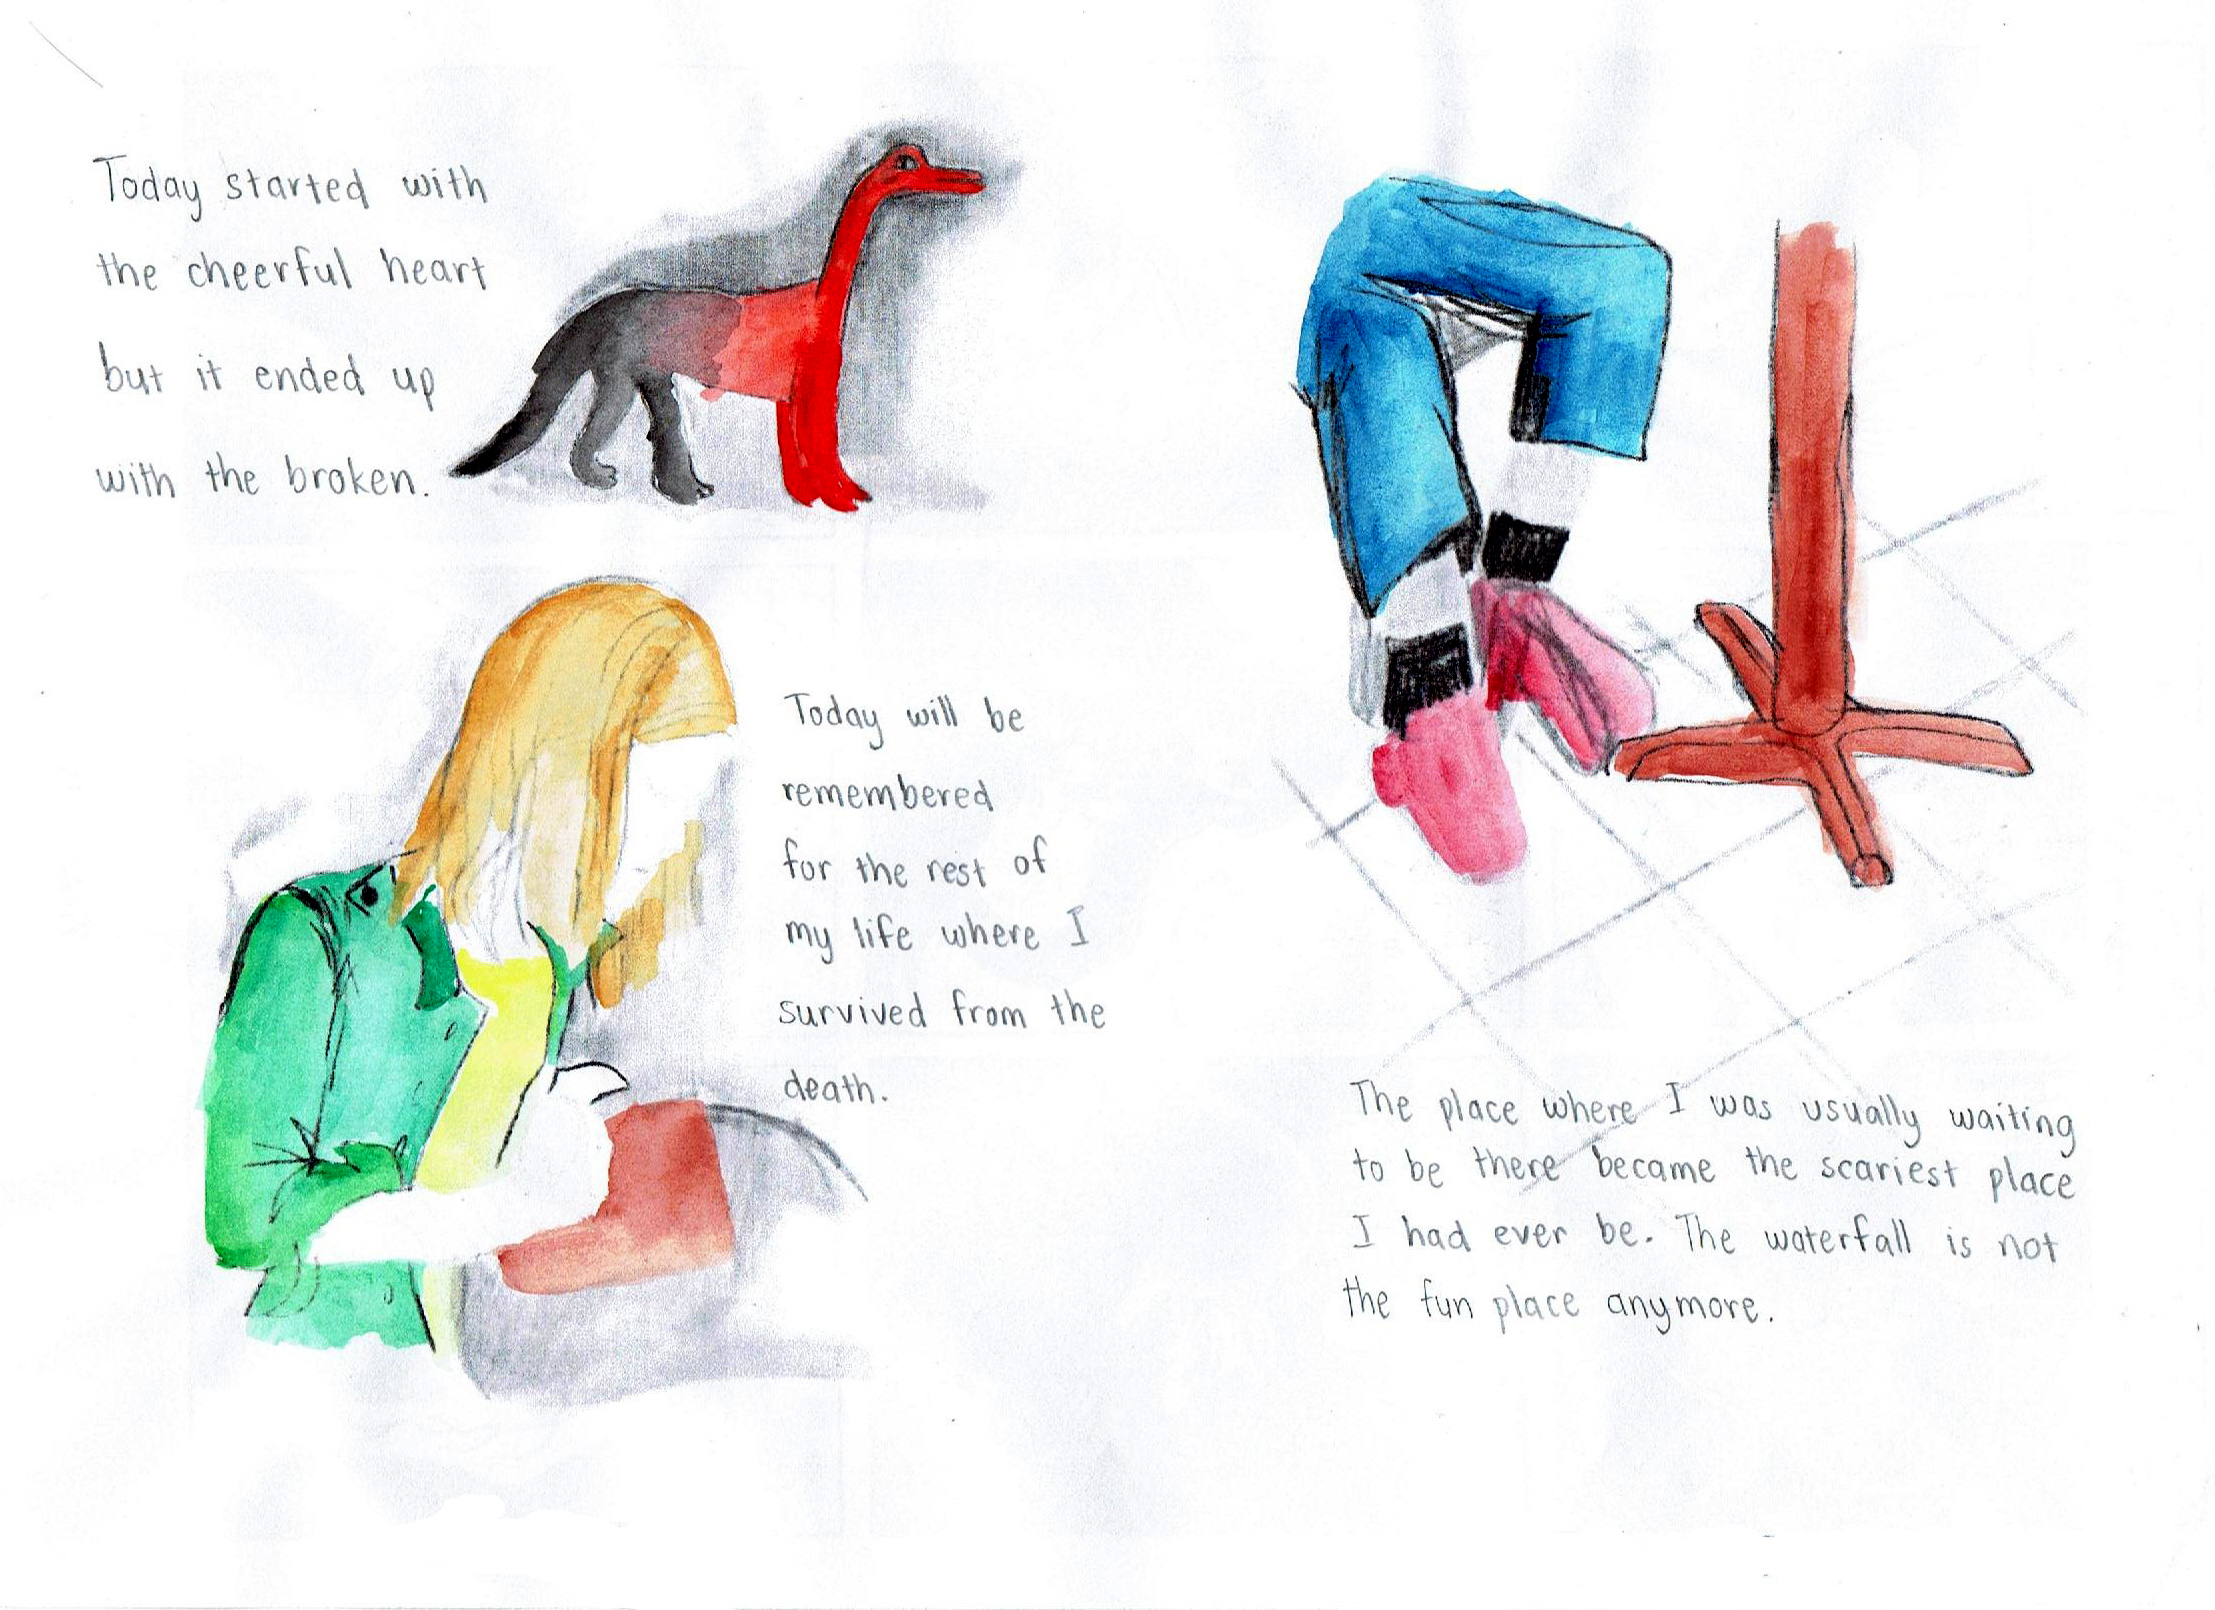 Today started with
the cheerful heart
but it ended up
with the broken.
Today will be
remembered
for the rest of
my life where I
survived from the
death.
The place where I was usually waiting
to be there became the scariest place
I had ever be. The waterfall is not
the fun place anymore.